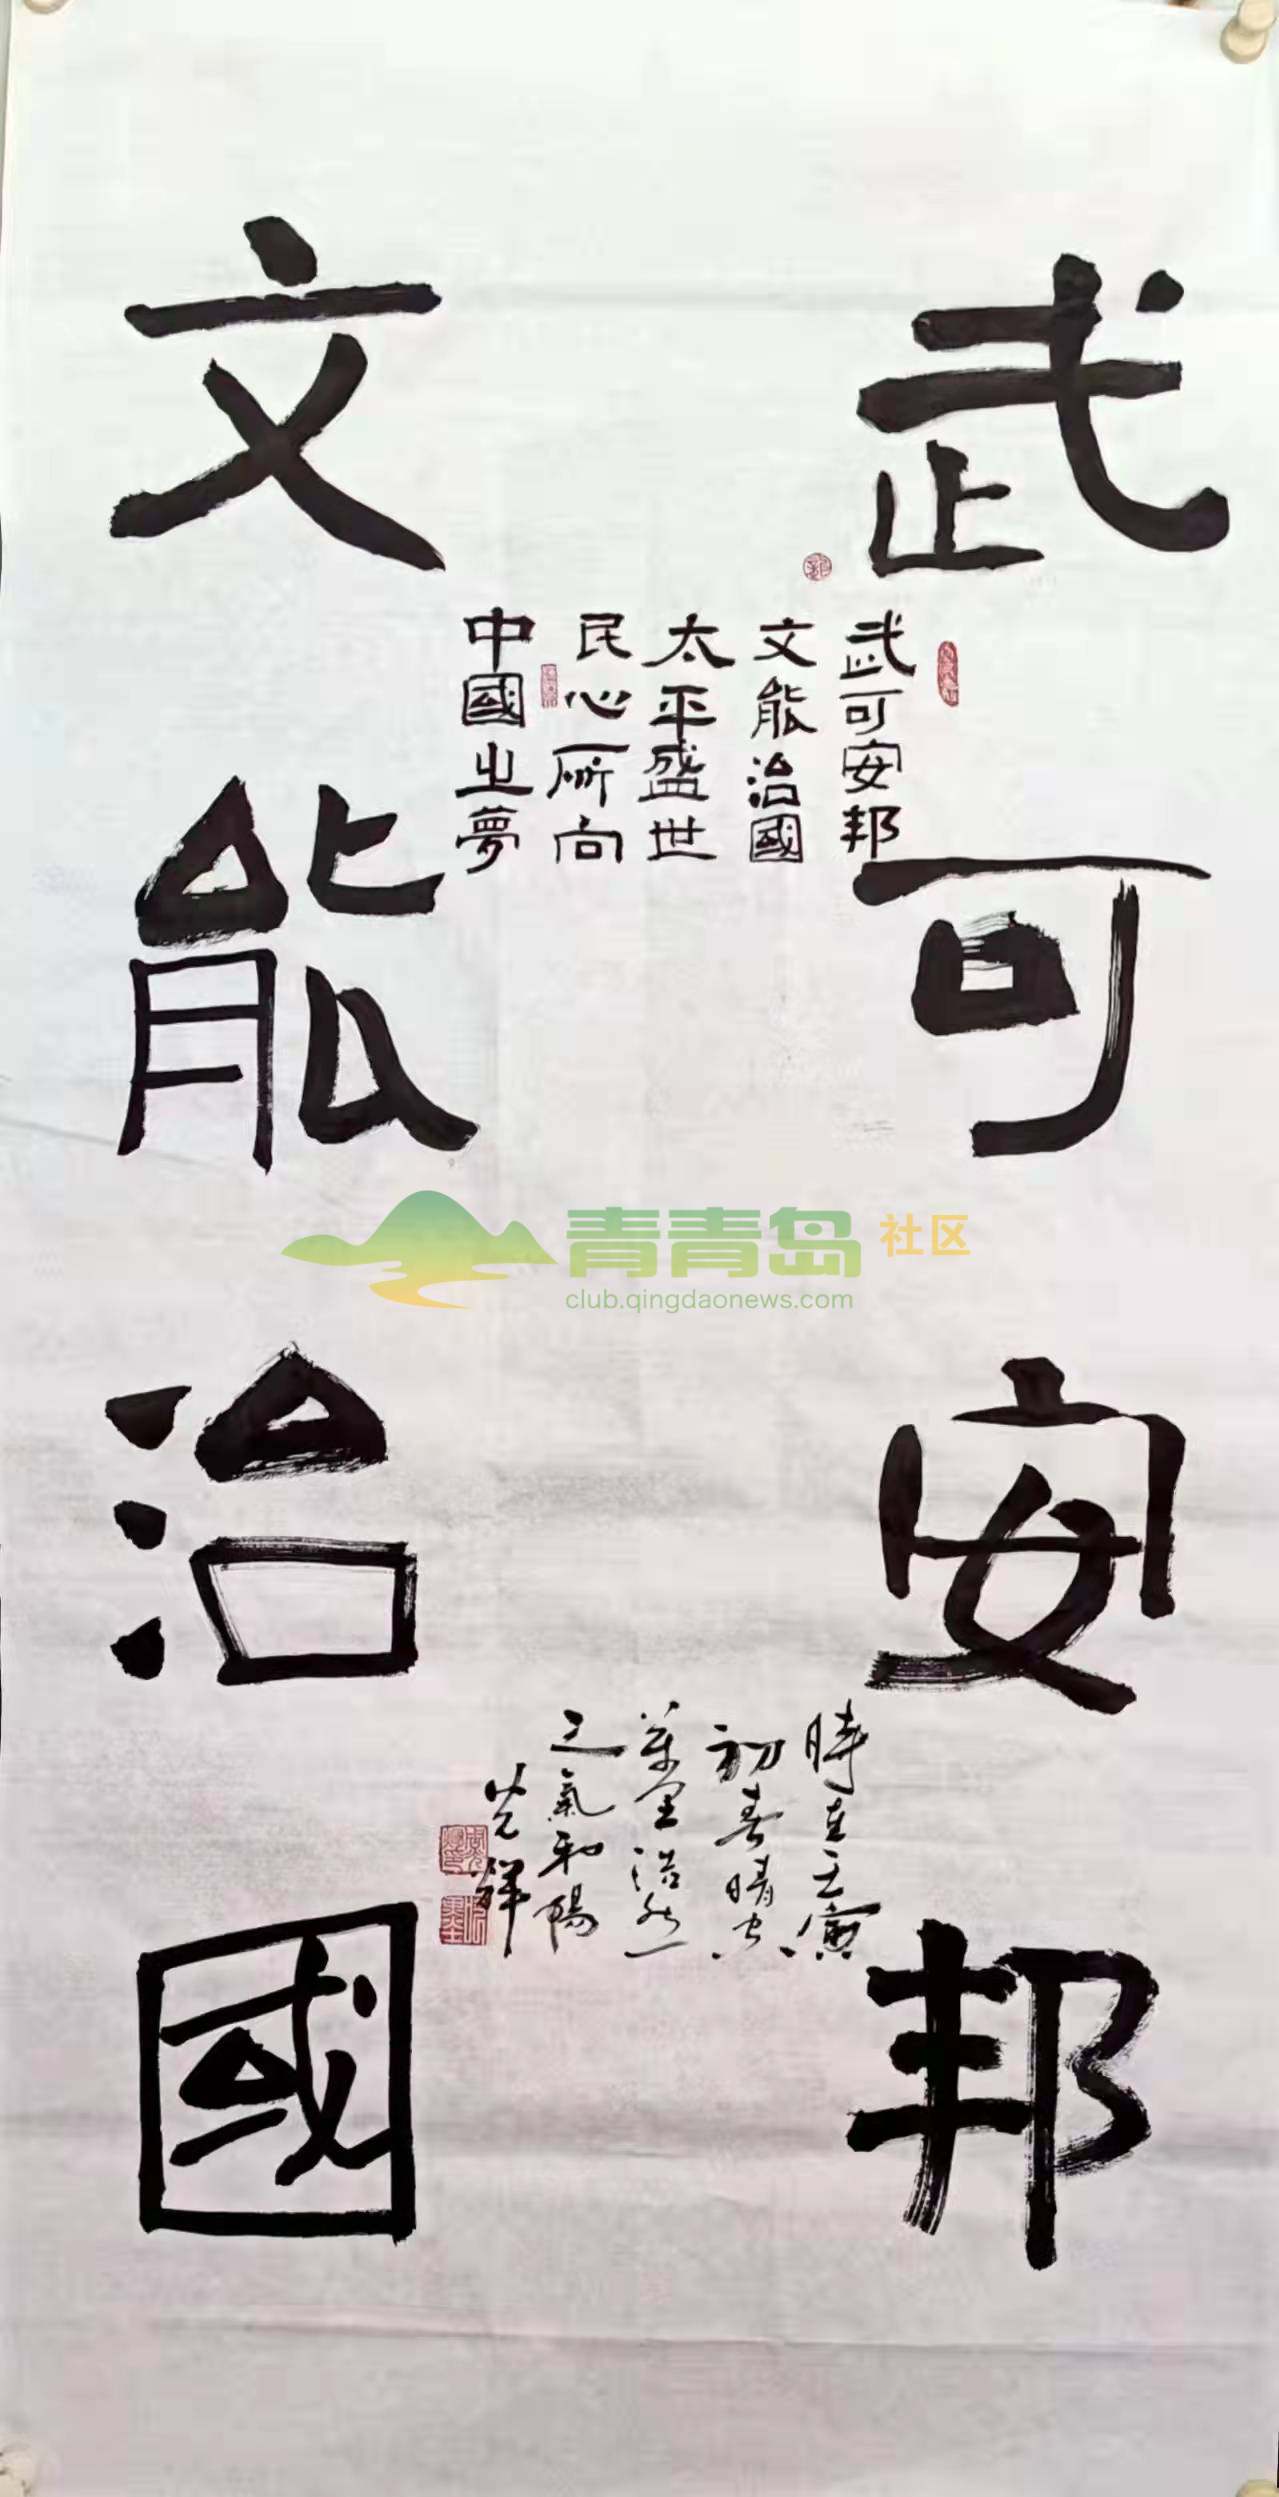 武可安邦
文能治國
武可安邦
文能治國
太平盛世
民心所向
中國之夢
時在壬寅
初春晴空
萬里浩然
正氣和陽
光祥
青青岛社区
club.qingdaonews.com